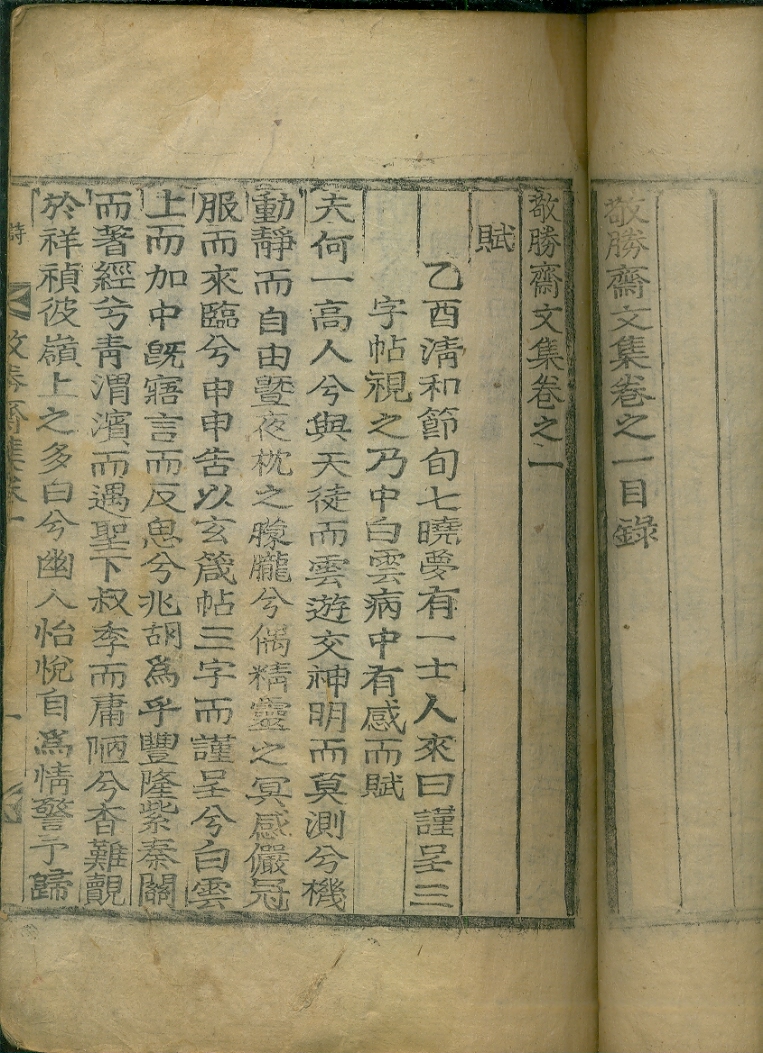 敬勝齋文集卷之一目錄
敬勝齋文集卷之一
賦
乙酉淸和節旬七曉夢有一士人來曰謹呈三
字帖視之乃中白雲病中有感而賦
夫何一高人兮與天徒而雲遊交神明而莫測兮機
動靜而自由曁夜枕之朦朧兮偶精靈之冥感儼冠
服而來臨兮申申告以玄箴帖三字而謹呈兮白雲
上而加中旣寤言而反思兮兆胡爲乎豐隆紫秦關
而著經兮靑渭濱而遇聖下叔季而庸陋兮杳難覿
於祥禎彼嶺上之多白兮幽人怡悅自爲情警予歸